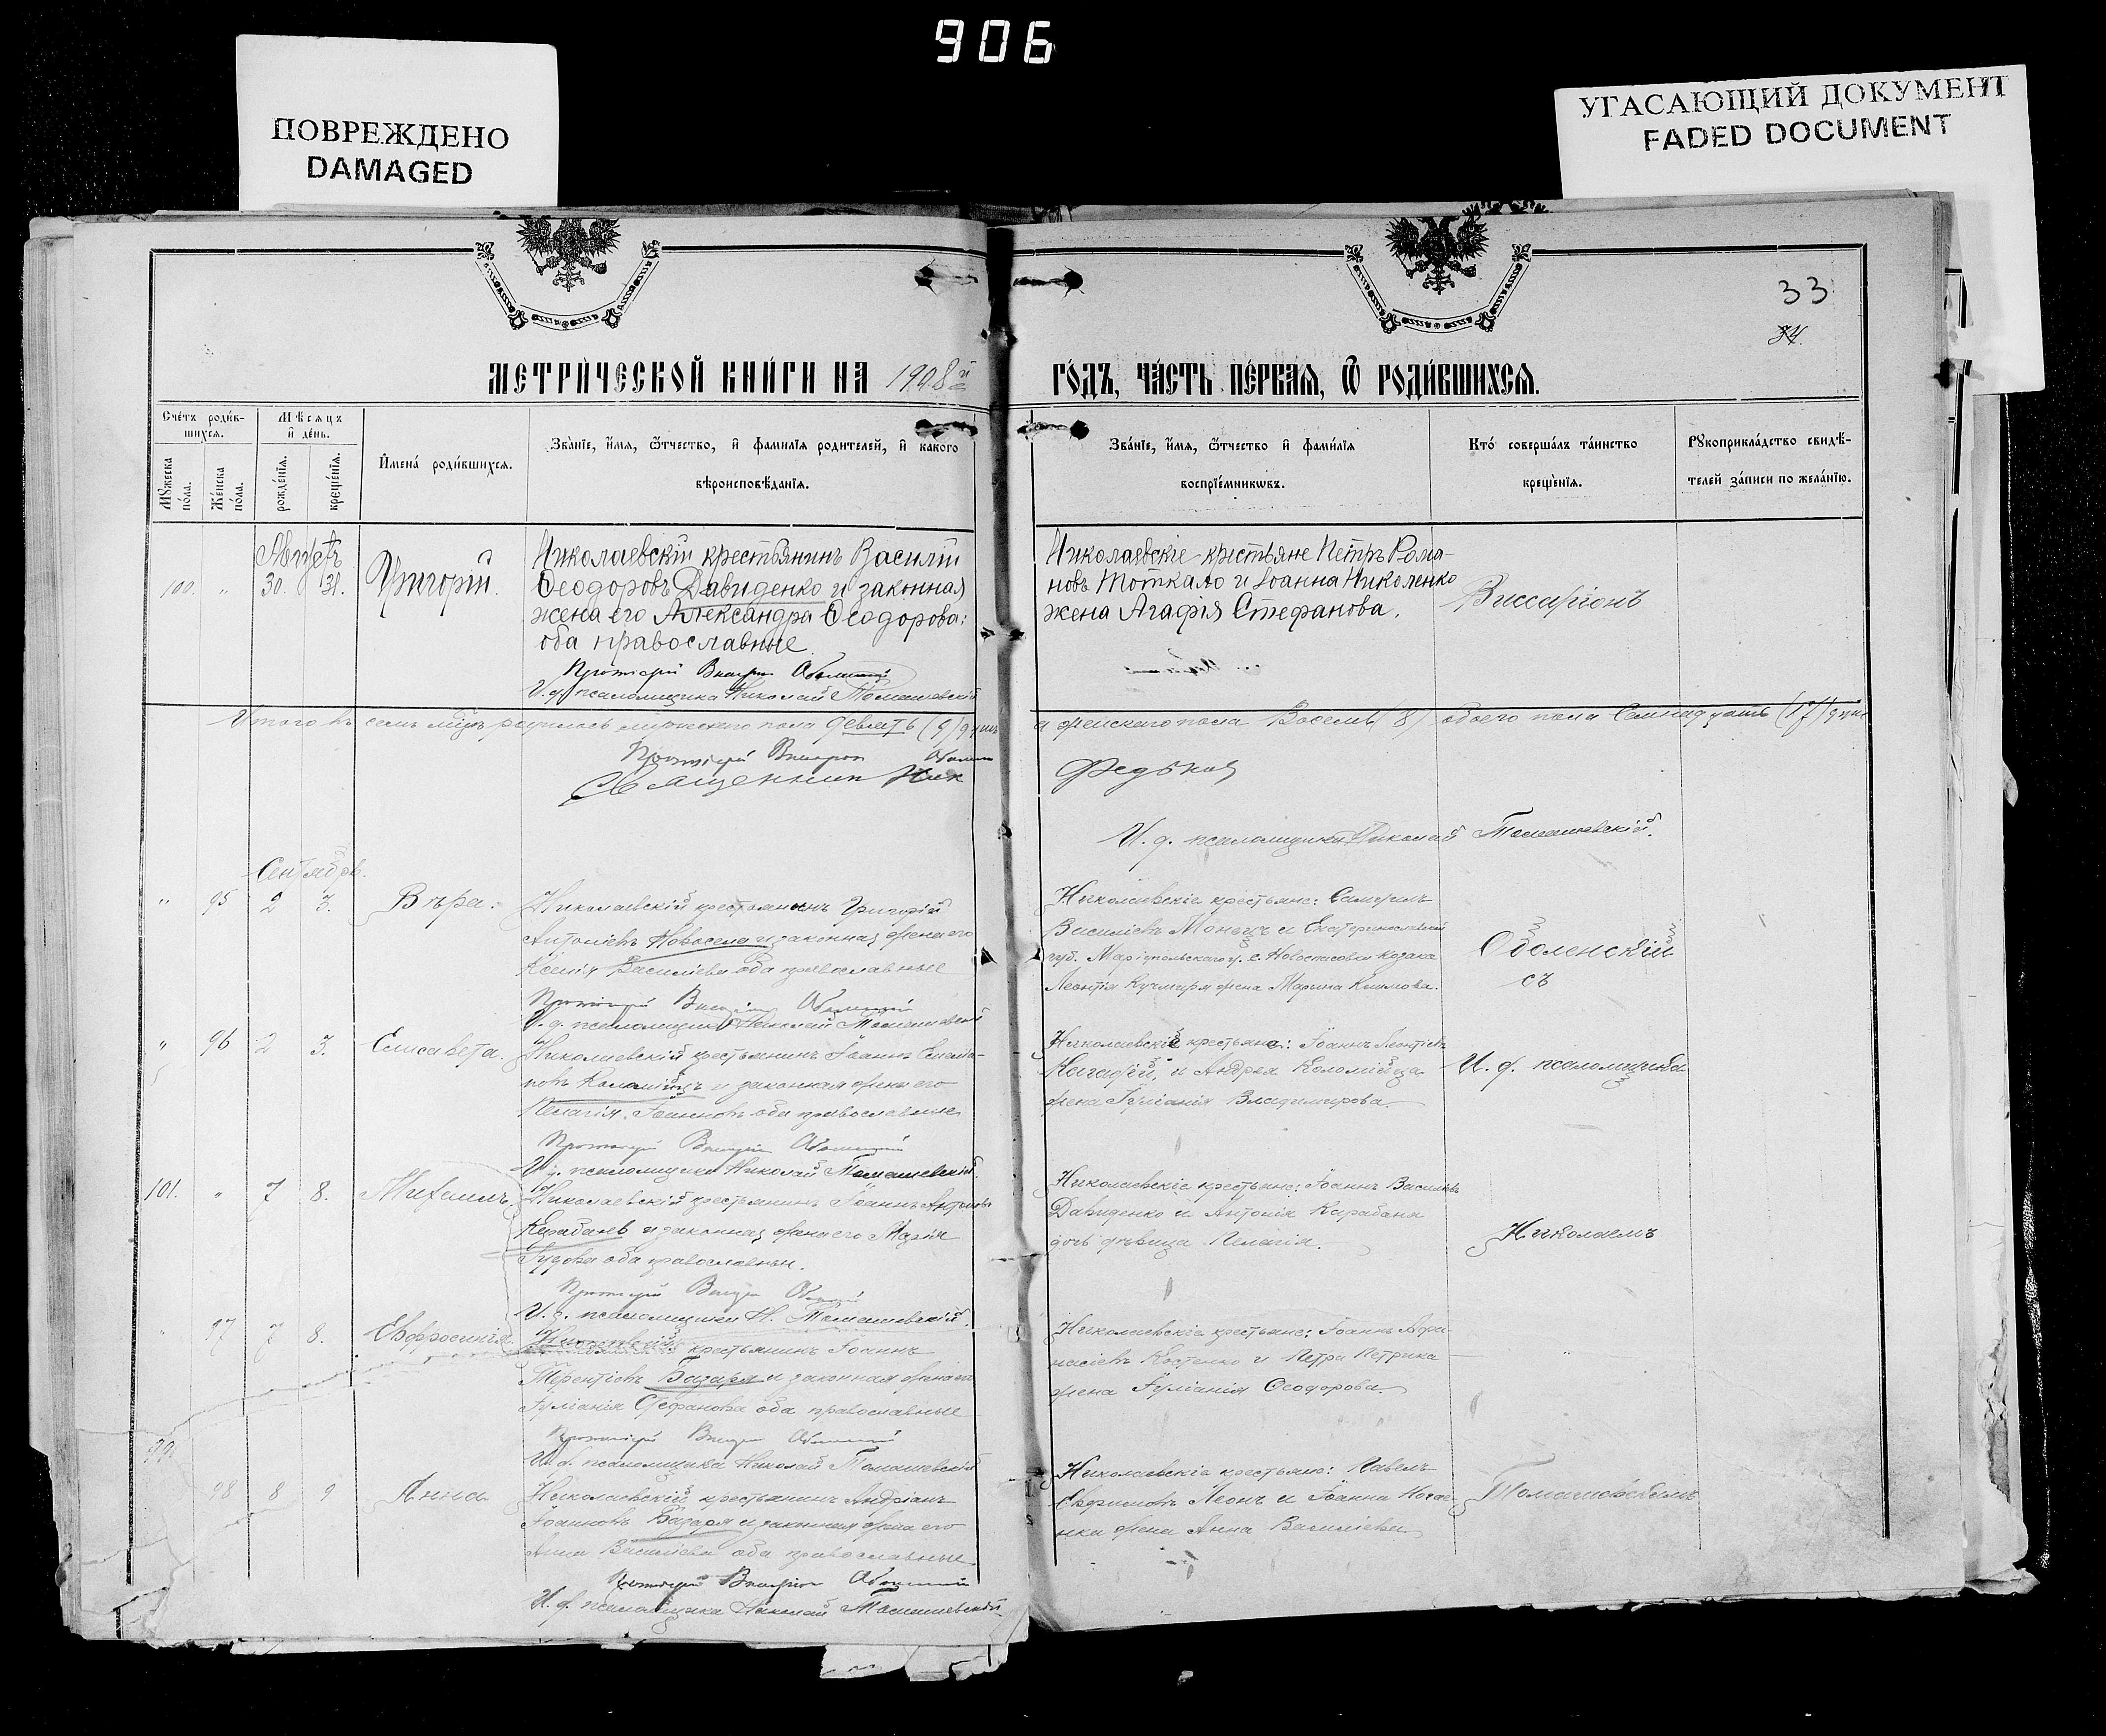 906
ПОВРЕЖДЕНО
DAMAGED
УГАСАЮЩИЙ ДОКУМЕНТ
FADED DOCUMENT
33
34.
МЕТРИЧЕСКОЙ КНИГИ НА 1908й
ГОДЪ, ЧАСТЬ ПЕРВАЯ, Ѿ РОДИВШИХСЯ.
Счетъ родив-
шихся.
Мѣсяцъ
и день.
Мужеска пола.
Женска пола.
рожденія.
крещенія.
Имена родившихся.
Званіе, имя, ѿтчество, и фамилія родителей, и какого
вѣроисповѣданія.
Званіе, имя, ѿтчество и фамилія
воспріемниковъ.
Кто совершалъ таинство
крещенія.
Рукоприкладство свидѣ-
телей записи по желанію.
Августъ
100. " 30. 31. Григорій.
Николаевскій крестьянинъ Василій
Ѳеодоровъ Давиденко и законная
жена его Александра Ѳеодорова;
оба православные.
Протоіерей Виссаріонъ Оболенскій
И. д. псаломщика Николай Томашевскій
Николаевскіе крестьяне Петръ Рома-
новъ Тоткало и Іоанна Николенко
жена Агафія Стефанова.
Виссаріонъ
Итого въ семъ мѣсяцѣ родилось мужескаго пола девять (9) душъ
а женскаго пола Восемь (8) обоего пола Семнадцать (17) душъ
Протоіерей Виссаріонъ Оболенскій
Священник Ник
Федьков
И. д. псаломщика Николай Томашевскій.
Сентябрь.
" 95 2 3. Вѣра.
Николаевскій крестьянинъ Григорій
Антоніевъ Новосела и законная жена его
Ксенія Василіева оба православные
Протоіерей Виссаріонъ Оболенскій
И. д. псаломщика Николай Томашевскій
Николаевскіе крестьяне: Самуилъ
Василіевъ и Екатеринославской
губ. Маріупольскаго у. с. козака
Леонтія Кучмиря жена Марина Климова.
Оболенскій
съ
" 96 2 3. Елисавета.
Николаевскій крестьянинъ Іоаннъ Емелья-
новъ Коломіецъ и законная жена его
Пелагія Іоаннова оба православные
Протоіерей Виссаріонъ Оболенскій
И. д. псаломщика Николай Томашевскій.
Николаевскіе крестьяне: Іоаннъ Леонтіевъ
и Андрея Коломійца
жена Іуліанія Владимирова.
И. д. псаломщика
101. " 7 8. Михаилъ.
Николаевскій крестьянинъ Іоаннъ
Карабань и законная жена его Марія
оба православные.
Протоіерей Виссаріонъ Оболенскій
И. д. псаломщика Н. Томашевскій.
Николаевскіе крестьяне: Іоаннъ Василіевъ
Давиденко и Антонія Карабаня
дочь дѣвица Пелагія.
Николаемъ
" 97 7 8. Евфросинія.
Николаевскій крестьянинъ Іоаннъ
Терентіевъ Базаря и законная жена его
Іуліанія Стефанова оба православные
Протоіерей Виссаріонъ Оболенскій
И. д. псаломщика Николай Томашевскій
Николаевскіе крестьяне: Іоаннъ Афа-
насіевъ Костенко и Петра Петрика
жена Іуліанія Ѳеодорова.
98 8 9 Анна
Николаевскій крестьянинъ Андріанъ
Іоанновъ Базаря и законная жена его
Анна Василіева оба православные
Протоіерей Виссаріонъ Оболенскій
И. д. псаломщика Николай Томашевскій
Николаевскіе крестьяне: Павелъ
Евфимовъ Леонъ и Іоанна
жена Анна Василіева
Томашевскимъ